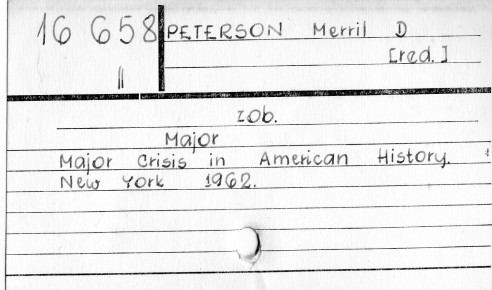 16 658 PETERSON Merril D
[red.]
II
zob.
Major
Major Crisis in American History.
New York 1962.